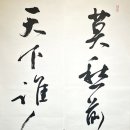 莫愁前
天下誰人